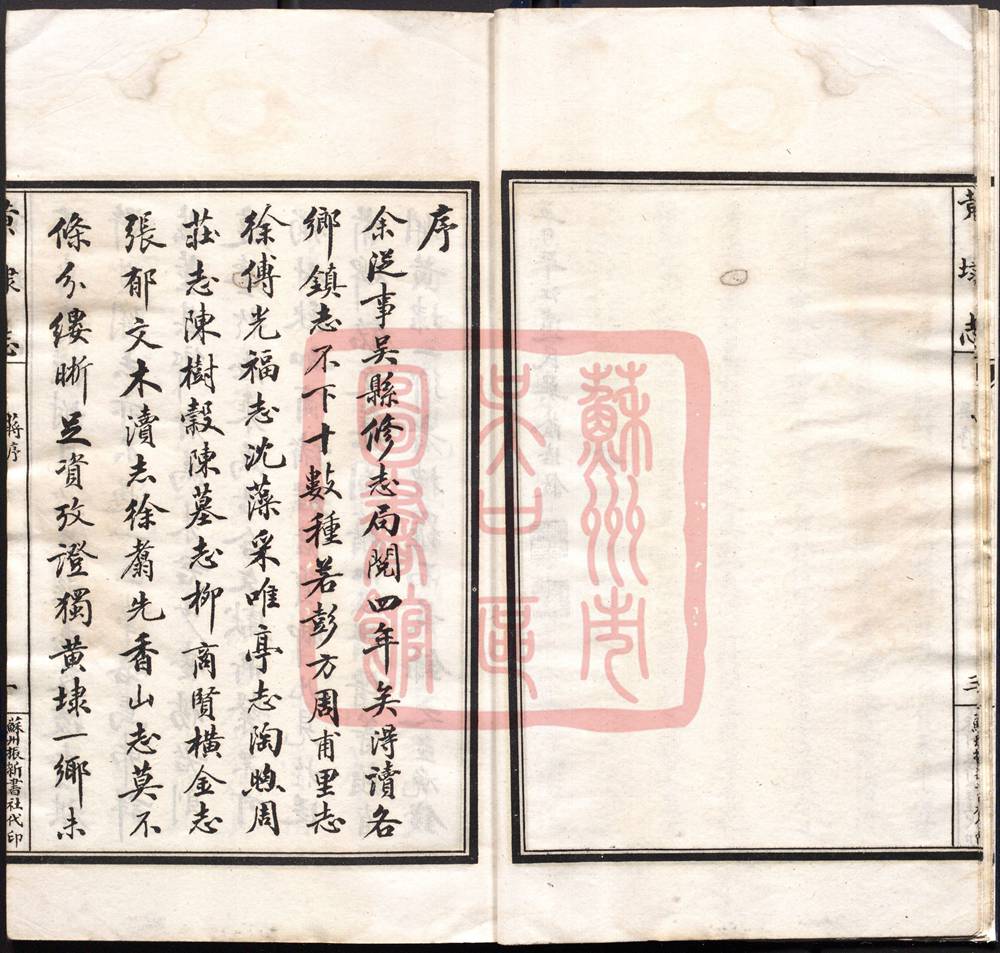 黄埭志
三
序
余從事吳縣修志局閱四年矣得讀各
鄉鎮志不下十數種若彭方周甫里志
徐傅光福志沈藻采唯亭志陶煦周
莊志陳樹穀陳墓志柳商賢橫金志
張郁文木瀆志徐翥先香山志莫不
條分縷晰足資攷證獨黄埭一鄉未
黄埭志
蔣序
一
蘇州振新書社代印
蘇州市
吳中區
圖書館